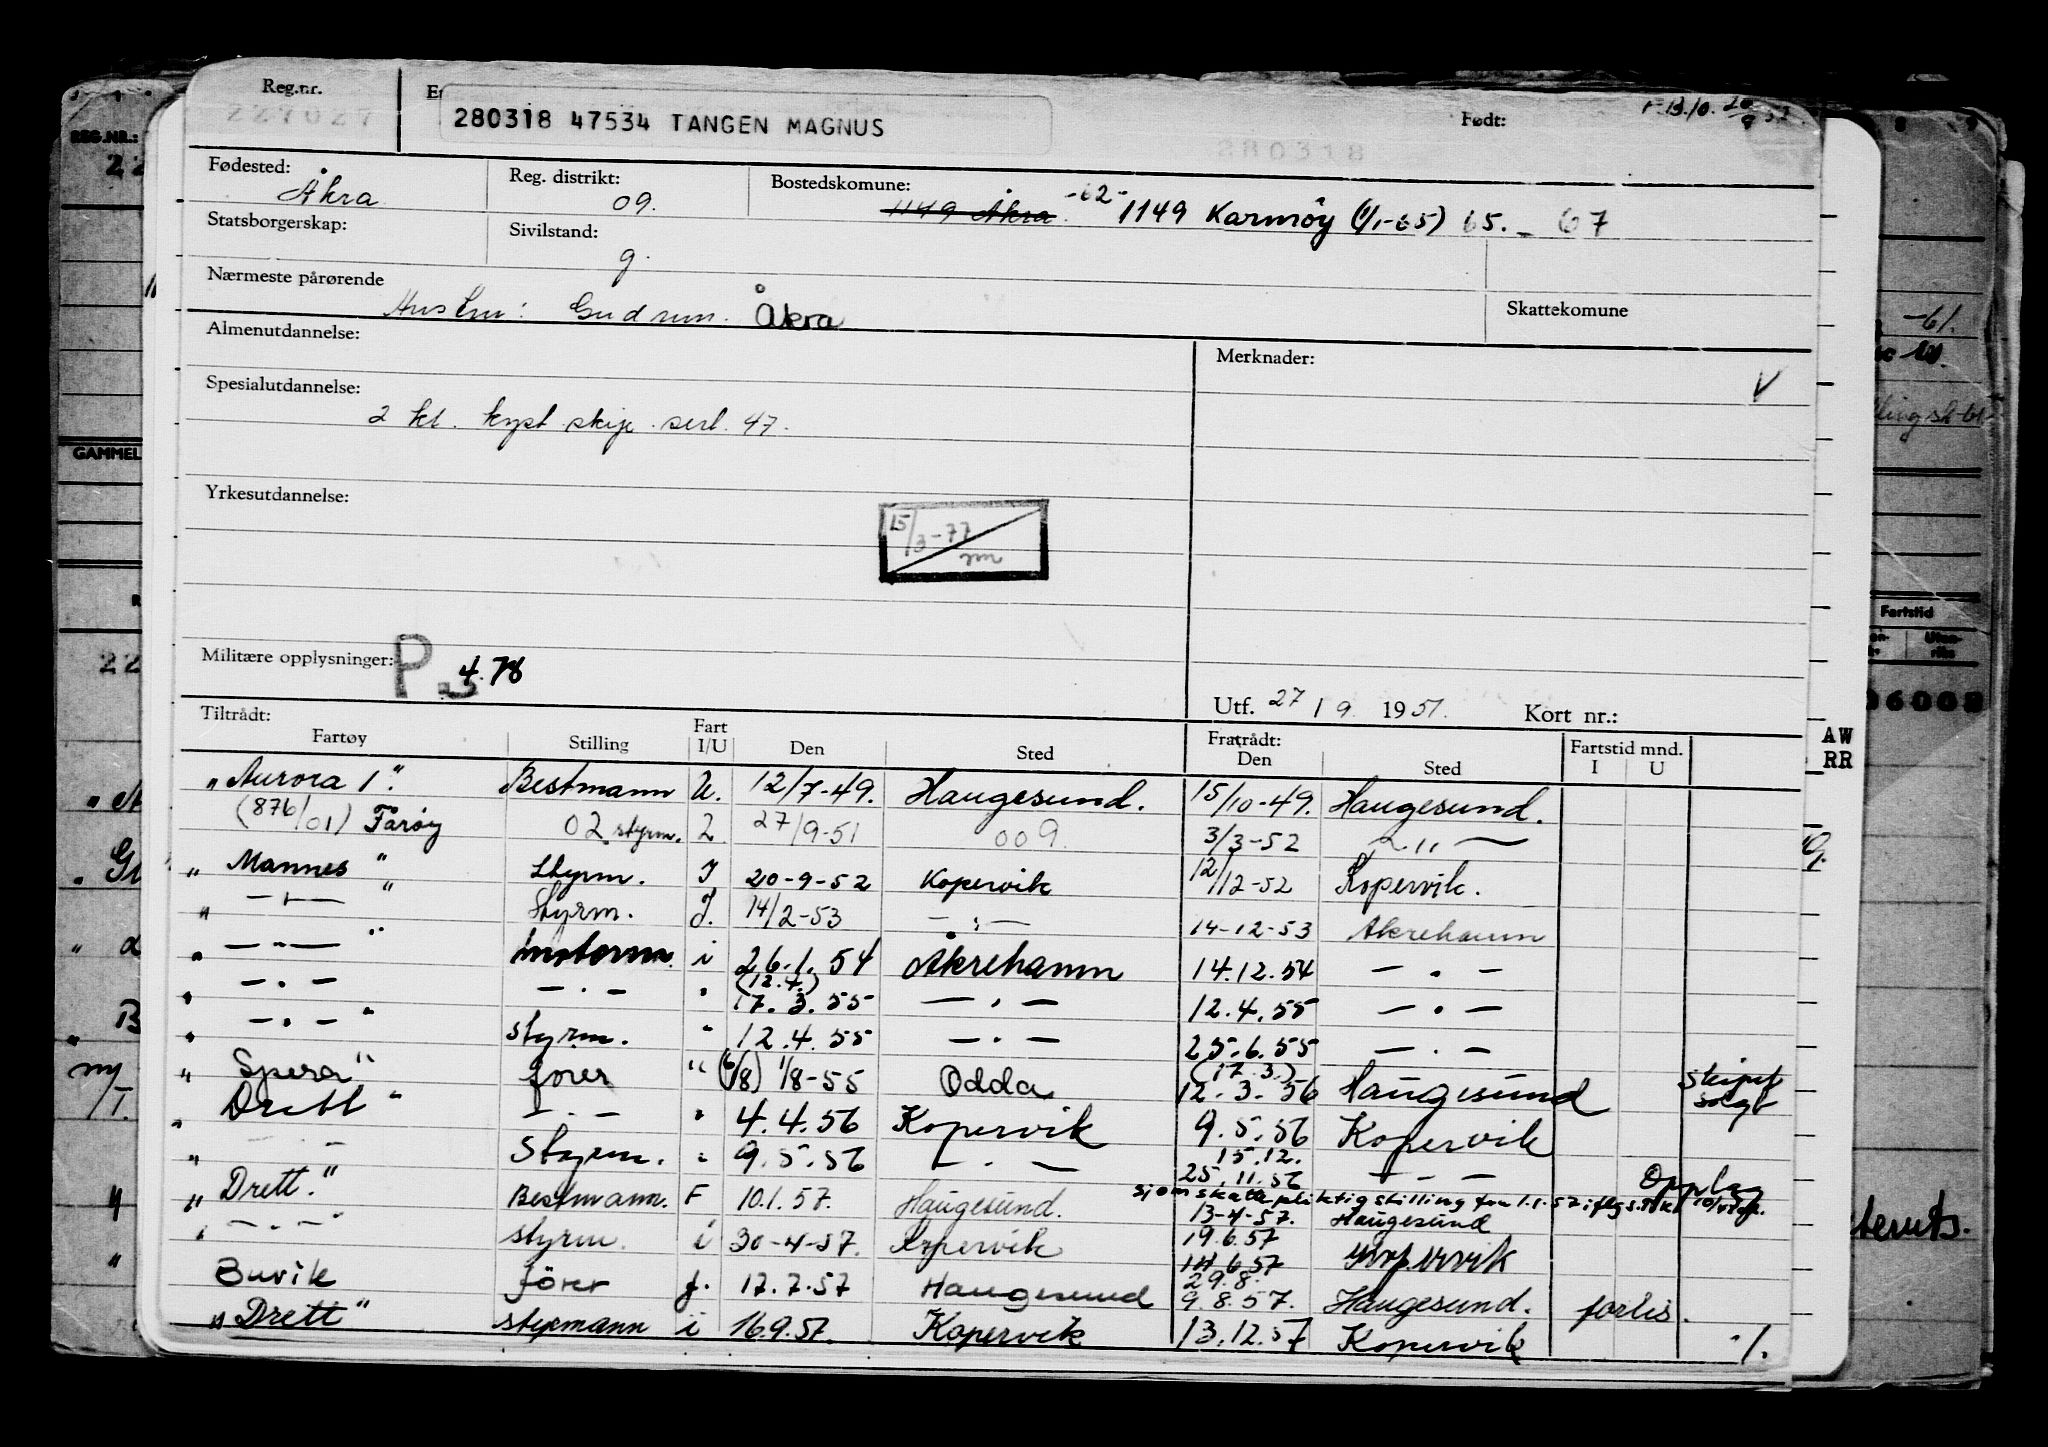 Reg.nr. Født: F-B.10.
227027 280318 47534 TANGEN MAGNUS 280318
Fødested: Reg. distrikt: Bostedskomune:
Åkra 09. 1149 Åkra -62- 1149 Karmøy (1/1-65) 65. - 67
Statsborgerskap: Sivilstand:
g.
Nærmeste pårørende
Hustru: Gudrun. Åkra Skattekomune
Almenutdannelse: Merknader:
V
Spesialutdannelse:
2 kl. kyst skip. sert. 47.
Yrkesutdannelse:
15/3-77
Militære opplysninger: P 4.78
Utf. 27 / 9 1951. Kort nr.:
Tiltrådt: Fratrådt:
Fartøy Stilling Fart I/U Den Sted Den Sted Fartstid mnd. I U
"Aurora 1". Bestmann U. 12/7-49. Haugesund. 15/10-49. Haugesund.
(876/01) Farøy 02 styrm. 2 27/9-51 009 3/3-52 — „ —
"Mannes" Styrm. I 20-9-52 Kopervik 12/12-52 Kopervik.
" — " — " Styrm. I. 14/2-53 — " — 14-12-53 Åkrehamn
" — " — " motorm. i 26.1.54 Åkrehamn 14.12.54 — " —
" — " — — " — " (12.4.) 17.3.55 — " — 12.4.55 — " —
" — " — " styrm. " 12.4.55 — " — 25.6.55 — " —
"Spera" fører " (6/8) 1/8-55 Odda (17.3.) 12.3.56 Haugesund skipet solgt
"Drett" — " — " 4.4.56 Kopervik 9.5.56 Kopervik
" — " — Styrm. " 9.5.56 — " — 15.12. 25.11.56 — " — Opplag
sjømskattepliktig stilling fra 1.1.57 iflg.
"Drett." Bestmann. F 10.1.57. Haugesund. 13-4-57. Haugesund
" — " — " styrm. i 30-4-57. Kopervik 19.6.57 14.6.57 Kopervik
Buvik fører f. 17.7.57 Haugesund 29.8. 9.8.57. Haugesund. forlis.
"Drett" styrmann i 16.9.57. Kopervik 13.12.57 Kopervik ./.
REG.NR.:
22
GAMMEL
22
-61.
Fartstid
Uten-
riks
06008
AW
RR